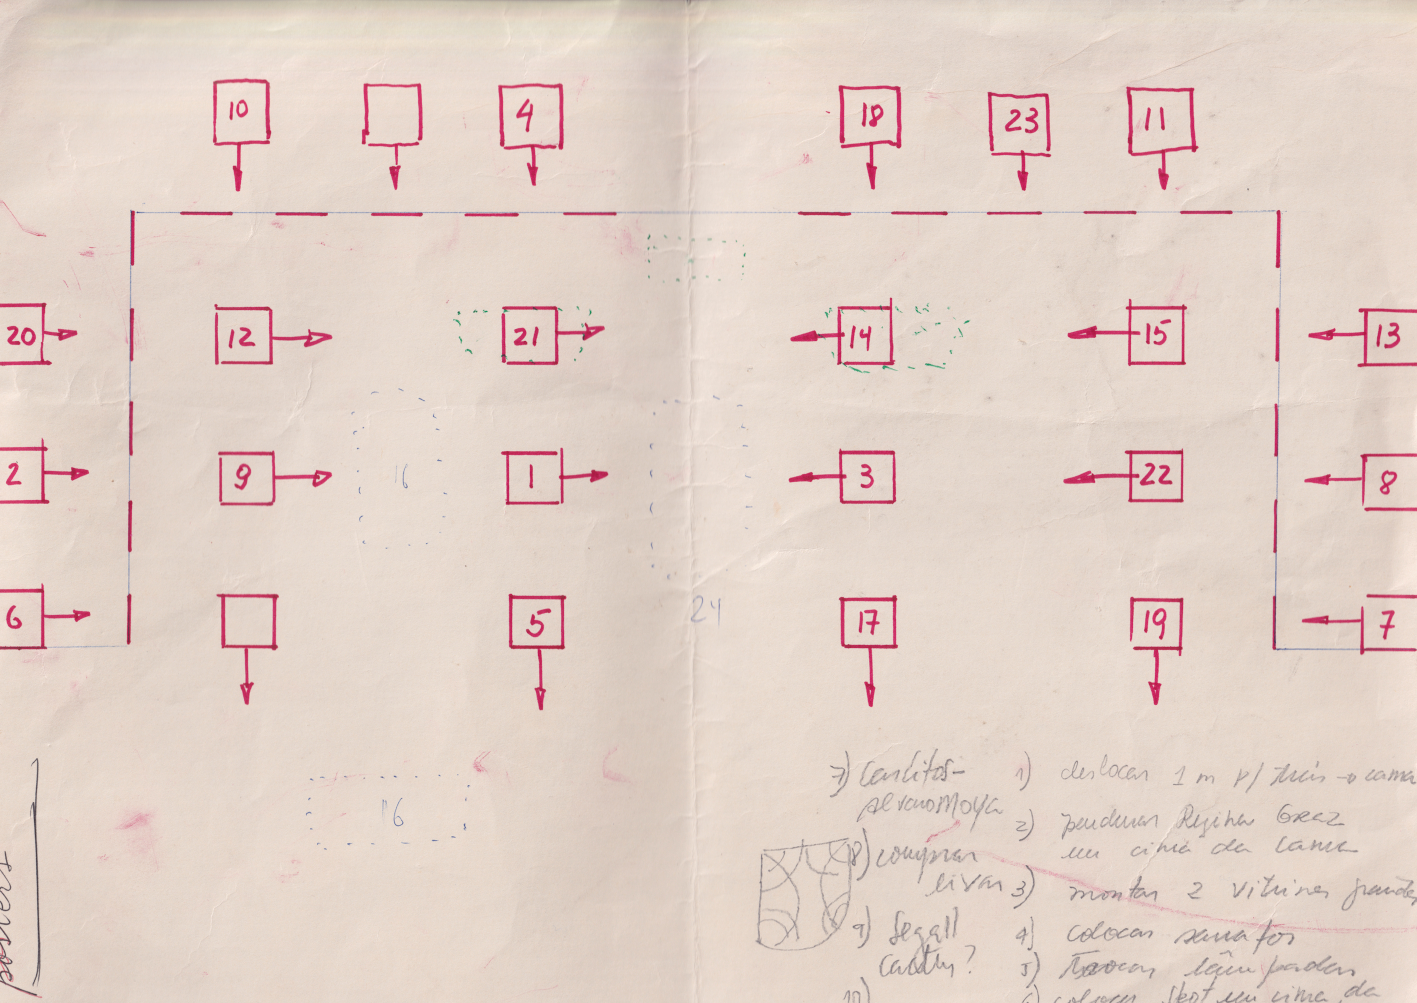 10 4 18 23 11
20 12 21 14 15 13
2 9 16 1 3 22 8
6 5 24 17 19 7
16
posters
7)
1) deslocar 1 m p/ trás → cama
Alvaro Moya
2) pendurar Regina Graz
em cima da cama
8) comprar
livros
3) montar 2 vitrines grandes
9) Segall
4) colocar
5) Trocar lâmpadas
10)
6) colocar em cima da